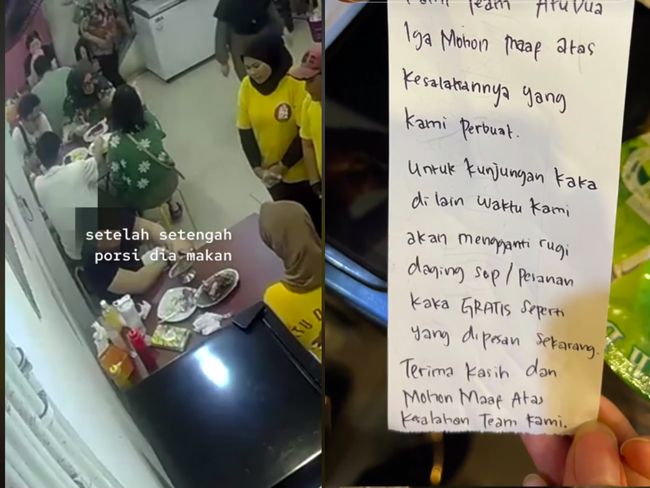 setelah setengah
porsi dia makan
Team
Iga Mohon maaf atas
kesalahannya yang
kami perbuat.
Untuk kunjungan kaka
di lain waktu kami
akan mengganti rugi
daging sop / pesanan
kaka GRATIS seperti
yang dipesan sekarang.
Terima kasih dan
Mohon Maaf Atas
Kealahan Team Kami.